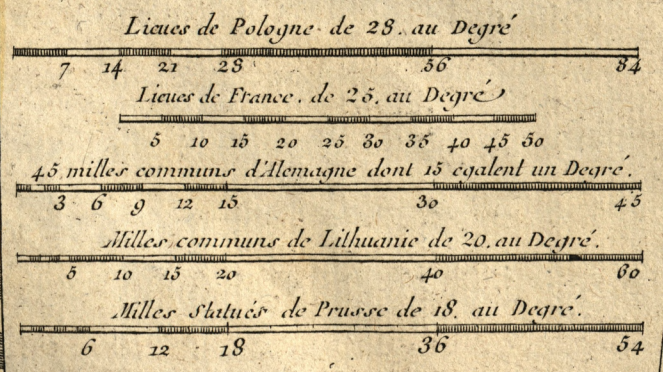 Lieues de Pologne de 28. au Degré
7 14 21 28 56 84
Lieues de France. de 25. au Degré
5 10 15 20 25 30 35 40 45 50
45 milles communs d'Alemagne dont 15 égalent un Degré.
3 6 9 12 15 30 45
Milles communs de Lithuanie de 20. au Degré.
5 10 15 20 40 60
Milles Statués de Prusse de 18. au Degré.
6 12 18 36 54